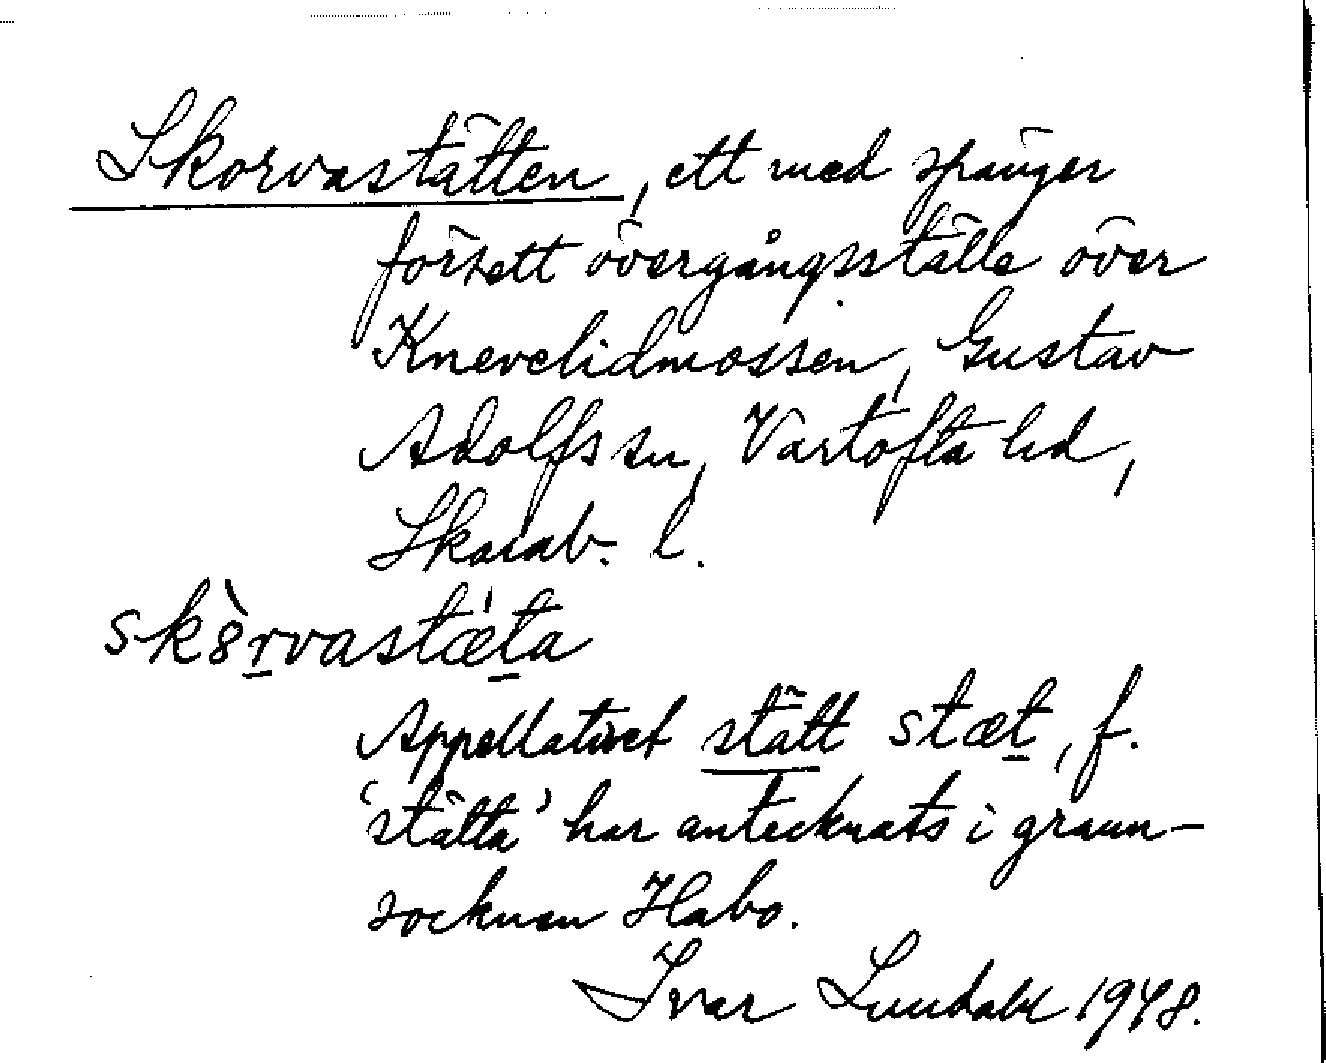 Skorvastätten, ett med spänger
försett övergångsställe över
Knevelidmossen, Gustav
Adolfs sn, Vartofta hd,
Skarab. l.
skȯ̀rvastæ̍ta
Appellativet stätt stæt, f.
'stätta' har antecknats i grann-
socknen Habo.
Ivar Lundahl 1948.